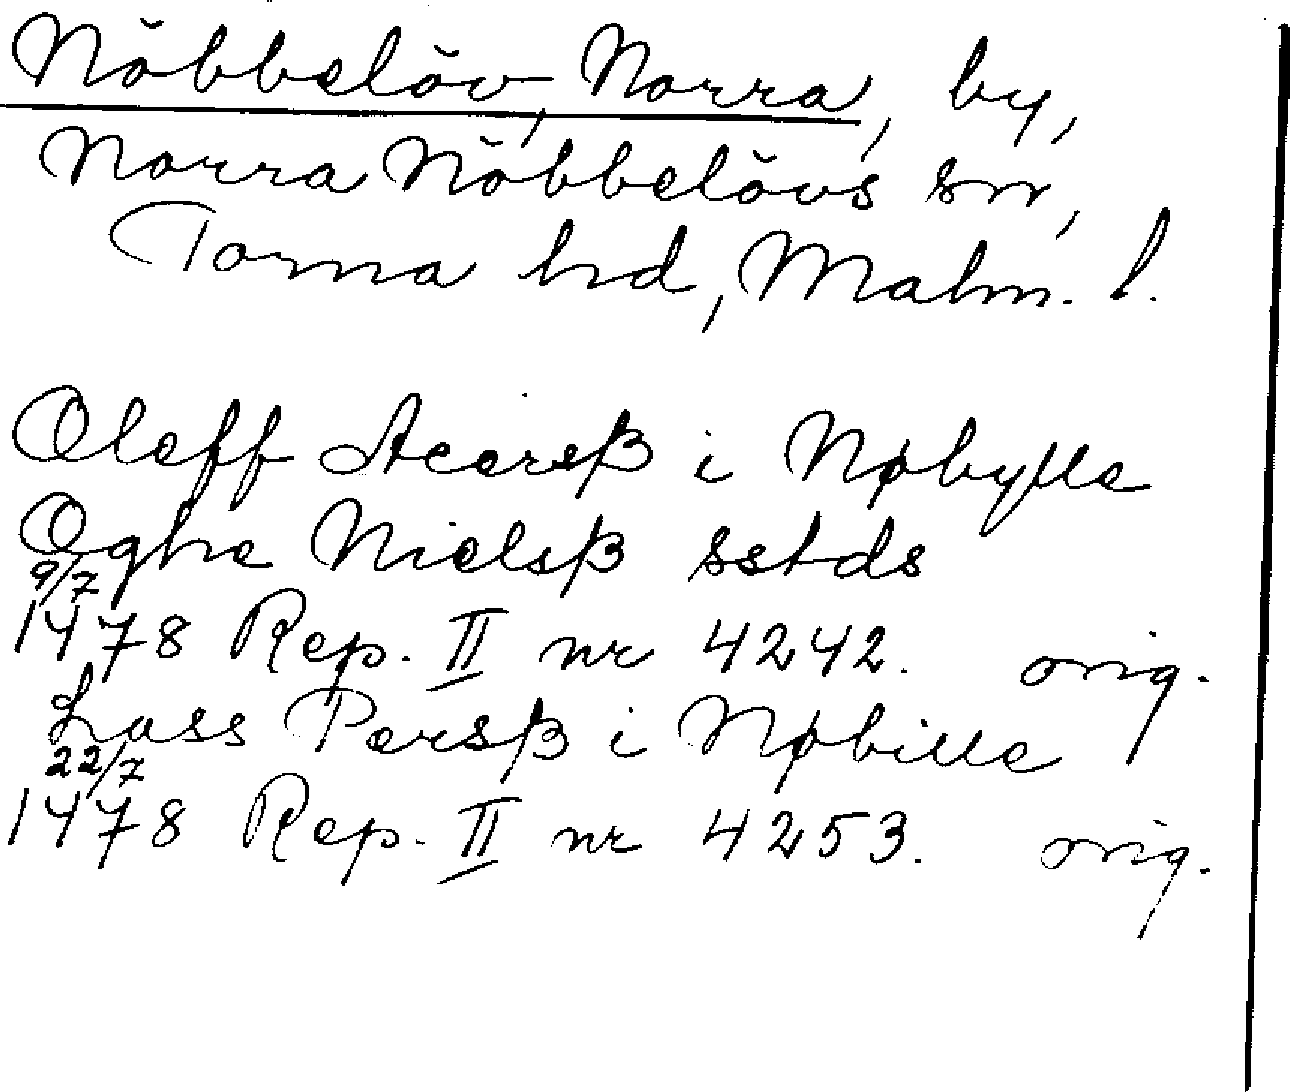 Nöbbelöv, Norra, by,
Norra Nöbbelövs sn,
Torna hd, Malm. l.
Oleff Aeersß i Nøbylle
Oghe Nielsß sstds
9/7
1478 Rep. II nr 4242. orig.
Lass Persß i Nøbille
22/7
1478 Rep. II nr 4253. orig.